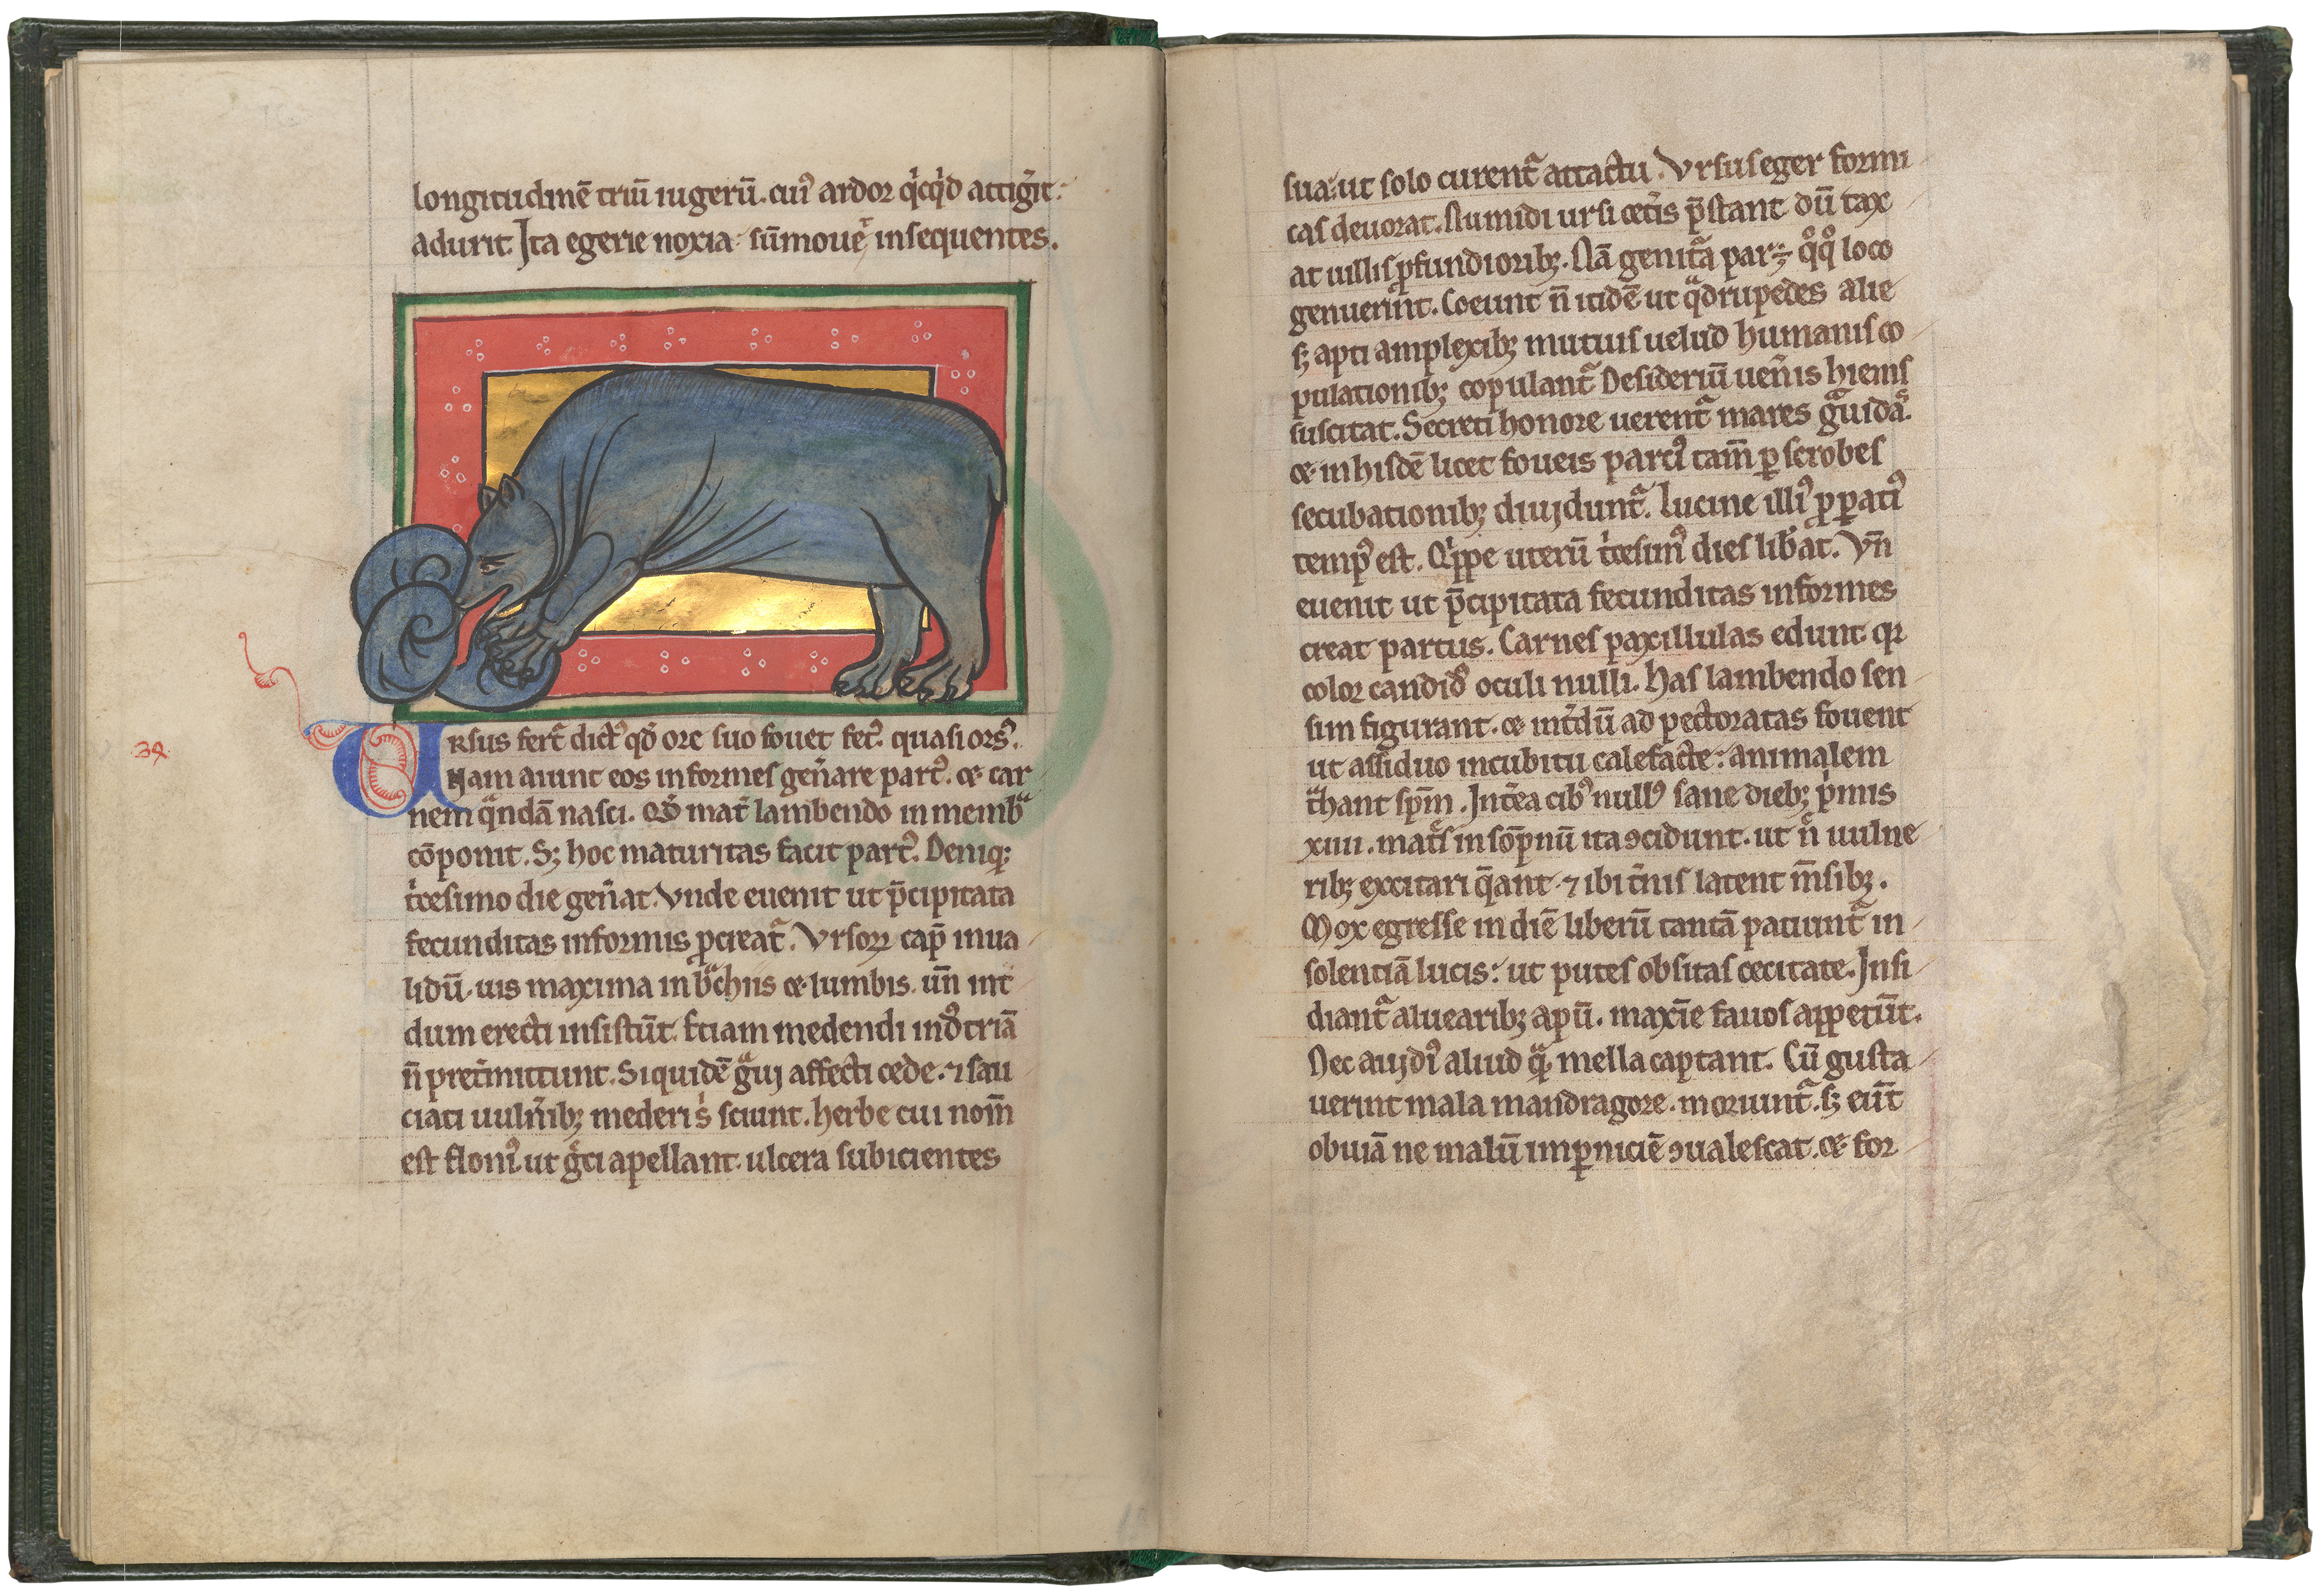 longitudinē triū iugerū. cui᾽ ardor qͥcqͥd attig̃it:
adurit. Ita egerie noxia sūmouēt insequentes.
34
Ursus fert᷑ dict᾽ qđ ore suo fouet fet᾽. quasi ors᾽.
Nam aiunt eos informes geñare part᾽. & car
nem qͣndā nasci. Qđ mat̃ lambendo in membͣ
cōponit. Sꝫ hoc maturitas facit part᾽. Deniqꝫ
tͥcesimo die geñat. Vnde euenit ut p̄cipitata
fecunditas informis ꝓcreat᷑. Vrsoꝝ cap̄ inua
lidū. uis maxima in bͣchiis & lumbis. un̄ int̃
dum erecti insistūt. Etiam medendi indꝰtriā
n̄ pret̃mittunt. Siquidē gͣuj affecti cede. ⁊ sau
ciati uuln̄ibꝫ mederi sͥ sciunt. herbe cui nom̄
est flonı᾽. ut gͤci apellant. ulcera subicientes
38
sua: ut solo curent᷑ attactu. Vrsus eger formi
cas deuorat. Numidi ursi cet̃is p̄stant dū tax
at uillis ꝓfundioribꝫ. Nā genit᷑a par ÷ qͦqͦ loco
genuerint. Coeunt n̄ itidē ut qͣdrupedes alie
sꝫ apti amplexibꝫ mutuis uelud humanis co
pulationibꝫ copulant᷑. Desideriū uen̄is hiems
suscitat. Secreti honore uerent᷑ mares gͣuidaˢ.
& in hisdē licet foueis part᾽ tam̄ ꝑ scrobes
secubationibꝫ diujdunt᷑. Lucine illi᾽ ꝓꝑati᾽
temp᾽ est. Qͥppe uterū tͥcesim᾽ dies lib̃at. Vn̄
euenit ut p̄cipitata fecunditas informes
creat partus. Carnes paxillulas edunt. qꝛ
color candid᾽ oculi nulli. has lambendo sen
sim figurant. & int̃dū ad pectoratas fouent
ut assiduo incubitu calefacte: animalem
tͣhant sp̄m. Int̃ea cib᾽ null᾽ sane diebꝫ pͥmis
xiiii. matͤs in sop̄nū ita ꝯcidunt. ut nͤ uulne
ribꝫ excitari q̄ant. ⁊ ibi t̃nis latent m̄sibꝫ.
Mox egresse in diē liberū tantā patiunt᷑ in
solentiā lucis: ut putes obsitas cecitate. Insi
diant᷑ aluearibꝫ apū. maxīe fauos appetūt.
Nec aujdi᾽ aliud qͣ mella captant. Cū gusta
uerint mala mandragore. moriunt᷑. sꝫ eūt
obuiā ne malū in ꝑniciē ꝯualescat. & for